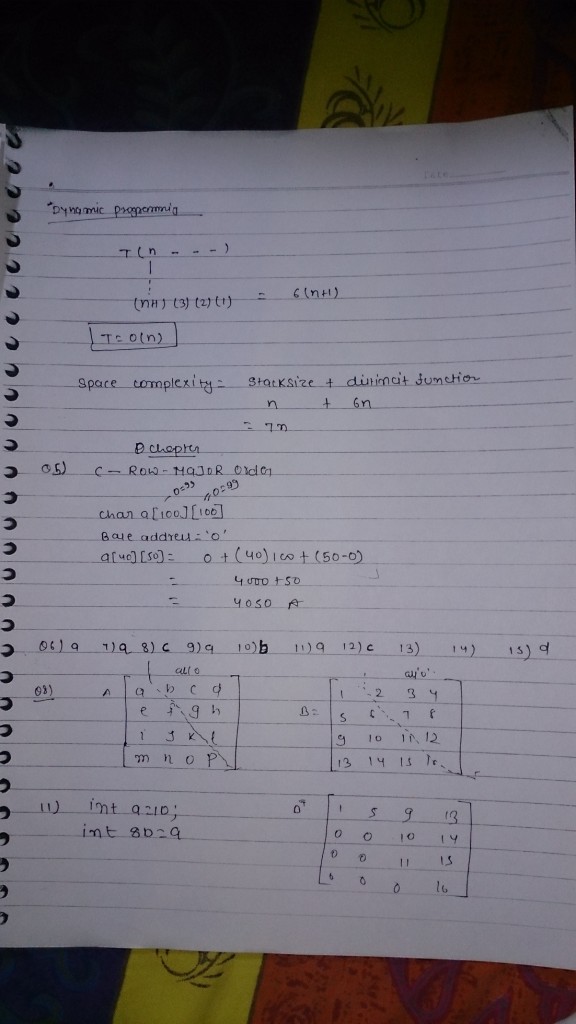 Dynamic programmig
T(n - - -)
(n+1) (3) (2) (1) = 6(n+1)
T = O(n)
Space complexity = stacksize + distincit function
n + 6n
= 7n
D chapter
05) C - ROW-MAJOR Order
0=99 0=99
char a[100][100]
Base address = '0'
a[40][50] = 0 + (40)100 + (50-0)
= 4000 + 50
= 4050 A
06) a 7) a 8) c 9) a 10) b 11) a 12) c 13) 14) 15) d
all 0 all '0'
08) A [a b c d B = [1 2 3 4
e f g h 5 6 7 8
i j k l 9 10 11 12
m n o p] 13 14 15 16]
11) int a=10; [1 5 9 13
int 8b=a 0 0 10 14
0 0 11 15
0 0 0 16]